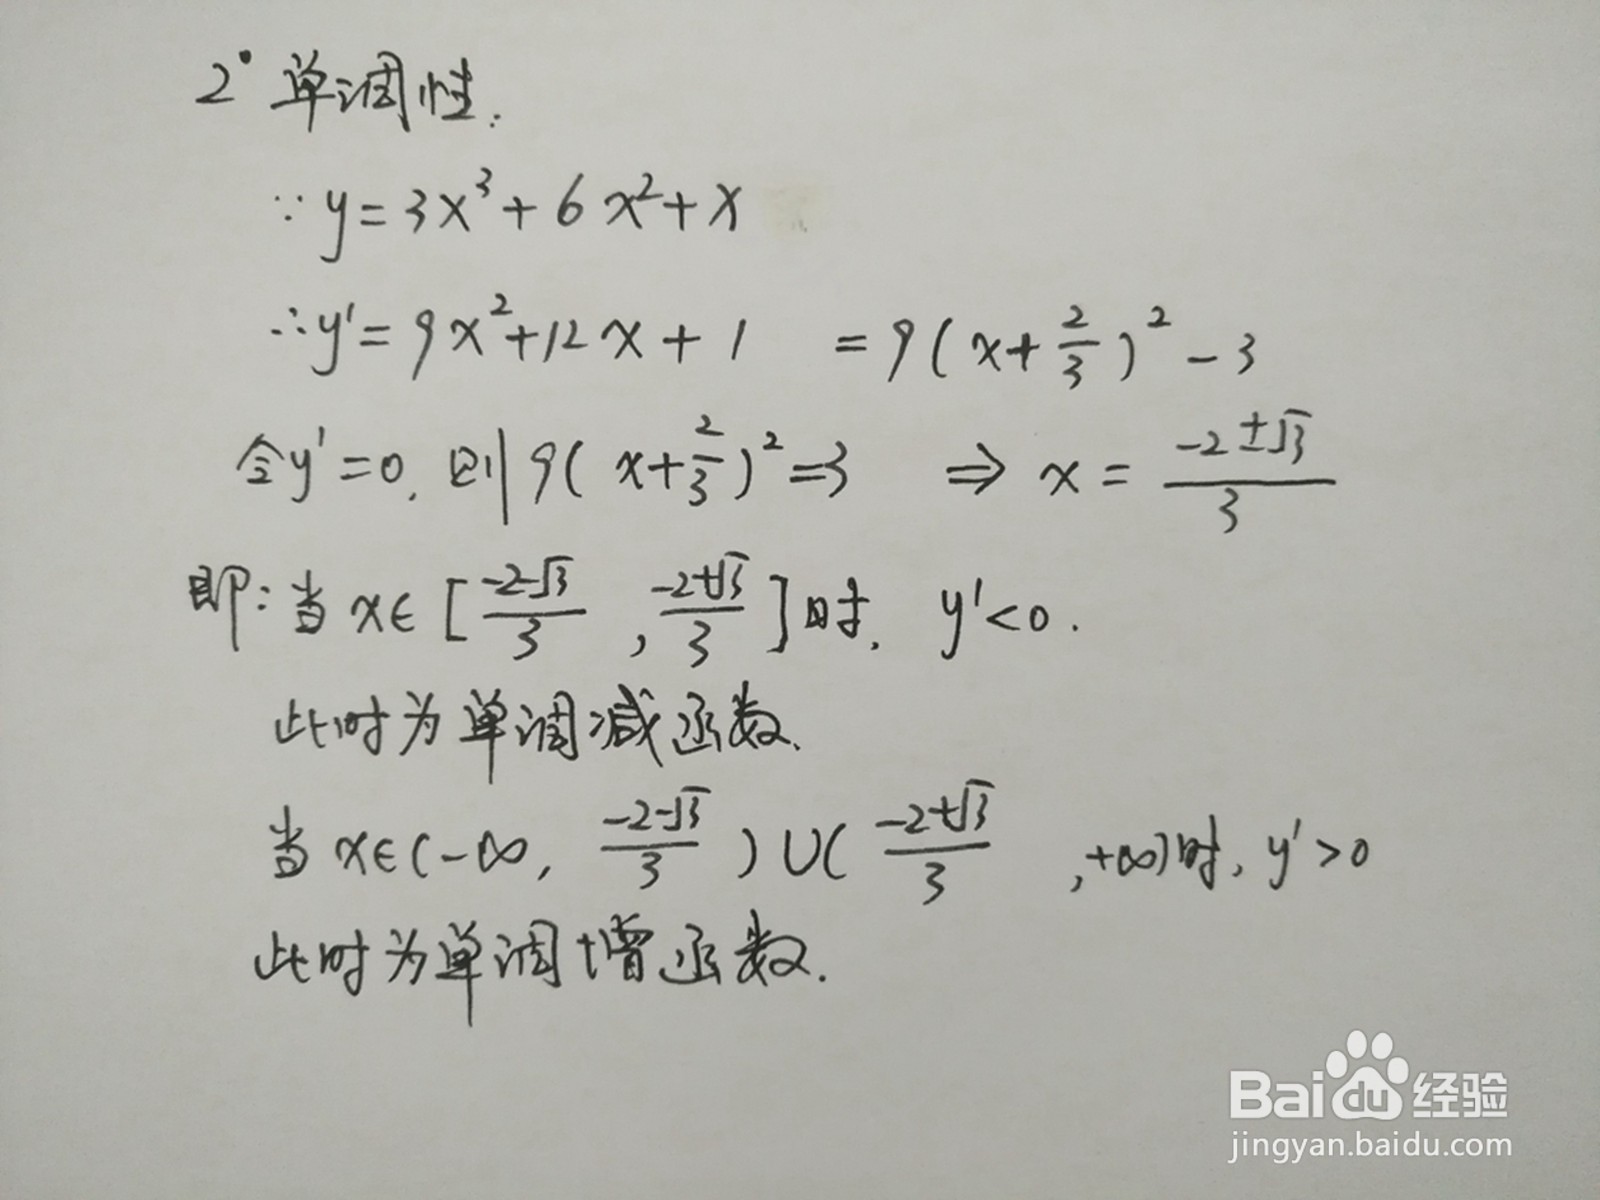 2° 单调性:
∵ y = 3x³ + 6x² + x
∴ y' = 9x² + 12x + 1 = 9(x + 2/3)² - 3
令y' = 0, 则 9(x + 2/3)² = 3 ⇒ x = (-2±√3)/3
即: 当 x∈[(-2-√3)/3, (-2+√3)/3]时, y' < 0.
此时为单调减函数.
当 x∈(-∞, (-2-√3)/3)∪((-2+√3)/3, +∞)时, y' > 0
此时为单调增函数.
Baidu 经验
jingyan.baidu.com